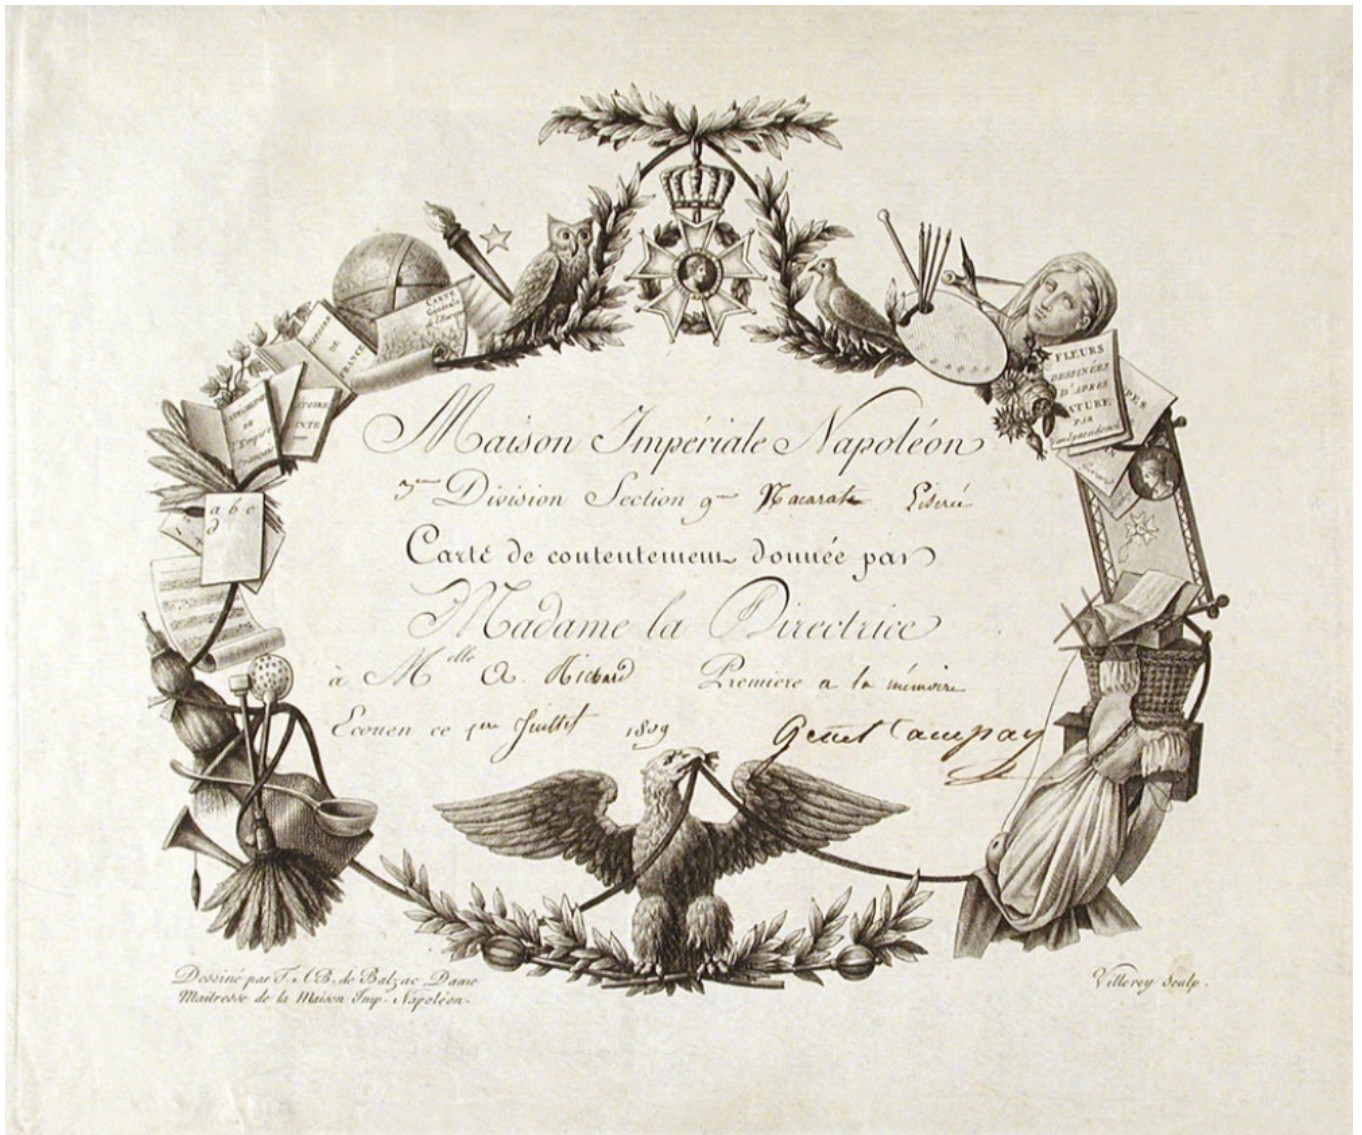 CARTE
Générale
de l'Europe
HISTOIRE
DE
FRANCE
HISTOIRE
INTE
DE
l'Empire
Français
a b c
d
FLEURS
DESSINÉES
D'APRÈS
NATURE
PAR
Vanspaendonck
Maison Impériale Napoléon
3me Division Section 9me Nacarate Liserée
Carte de contentement donnée par
Madame la Directrice
à Melle A. Richard Premiere a la mémoire
Ecouen ce 1er Juillet 1809 Genet Campan
Dessiné par T. A B. de Balzac Dame
Maitresse de la Maison Imp. Napoléon.
Villerey Sculp.